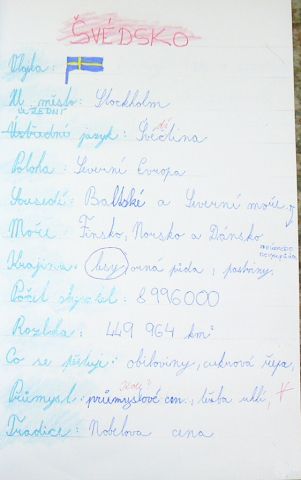 ŠVÉDSKO
Vlajka:
Hl. město: Stockholm
ÚŘEDNÍ
Ústřední jazyk: Švéčtina
Poloha: Severní Evropa
Sousedé: Baltské a Severní moře
Moře: Finsko, Norsko a Dánsko
Krajina: lesy, orná půda, pastviny.
Počet obyvatel: 8996000
Rozloha: 449 964 km²
Co se pěstuje: obiloviny, cukrová řepa,
Průmysl: průmyslové cen., těžba uhlí,
Tradice: Nobelova cena